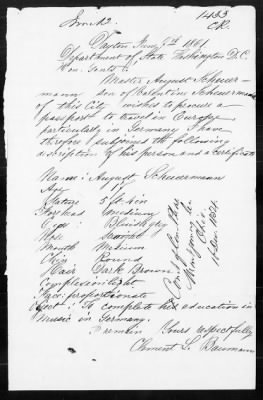 1433
CR.
Dayton June 9th 1881
Department of State Washington D.C.
Hon. Gents
Master August Scheuer-
mann son of Valentine Scheuerman
of this City wishes to procure a
passport to travel in Europe
particularly in Germany I have
therefore subjoined the following
description of his person and a certificate
Name: August Scheuermann
Age 17
Stature 5 ft in
Forehead Medium
Eyes Bluish gry
Nose
Mouth Medium
Chin Round
Hair Dark Brown
Complexion light
Face: proportionate
Object: To complete his education in
Music in Germany.
I remain Yours respectfully
Clement L. Baumann
Montgomery Co.
Ohio